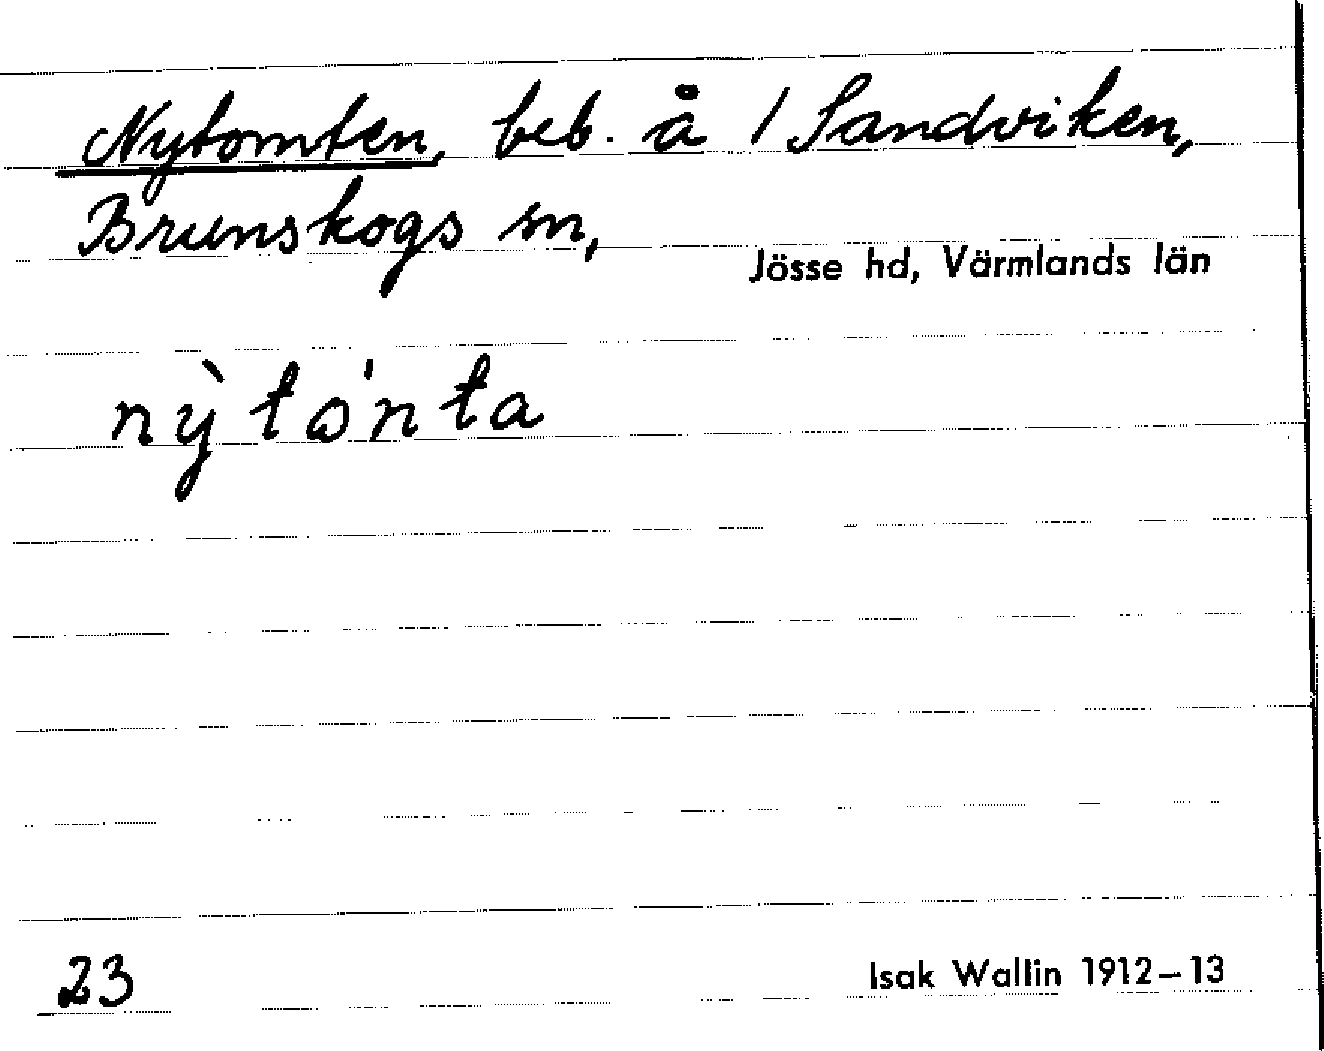 Nytomten, beb. å / Sandviken,
Brunskogs sn,
Jösse hd, Värmlands län
nỳtɷ'nta
23
Isak Wallin 1912–13